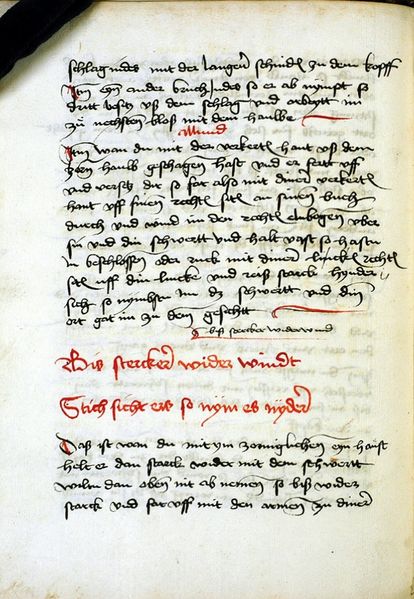 schlag indes mit der langen schnid zu dem kopff
Item ein ander bruch Indes so er ab nympt so
tritt besitz vß dem schlag vnd arbeytt im
zu nechsten bloß mit dem haulbe
Wind
Item wan du mit der verkerten haut vß dem
zorn haub geschagen hast vnd er fatt vff
vnd versetz dir so far also mit diner verkerten
hant vff sinen rechten siten an sinen buch
durch vnd wind im den rechten elnbogen vber
sin vnd din schwertt vnd halt vast so hastu
in beschlossen oder ruck mit diner lincken rechten
siten vff die lincke vnd reiß starck hynder
sich so nymbstu im dz schwertt vnd din
ort gat im zu dem gesichtt
Biß stercker wider wind
Bis stercker wider windt
Stich sicht ers so nym es nyder
Daß ist wan du mit ym zorniglichen eyn haust
helt er dan starck wider mit dem schwertt
wiltu dan oben nit ab nemen so biß wider
starck vnd far vff mit den armen zu diner